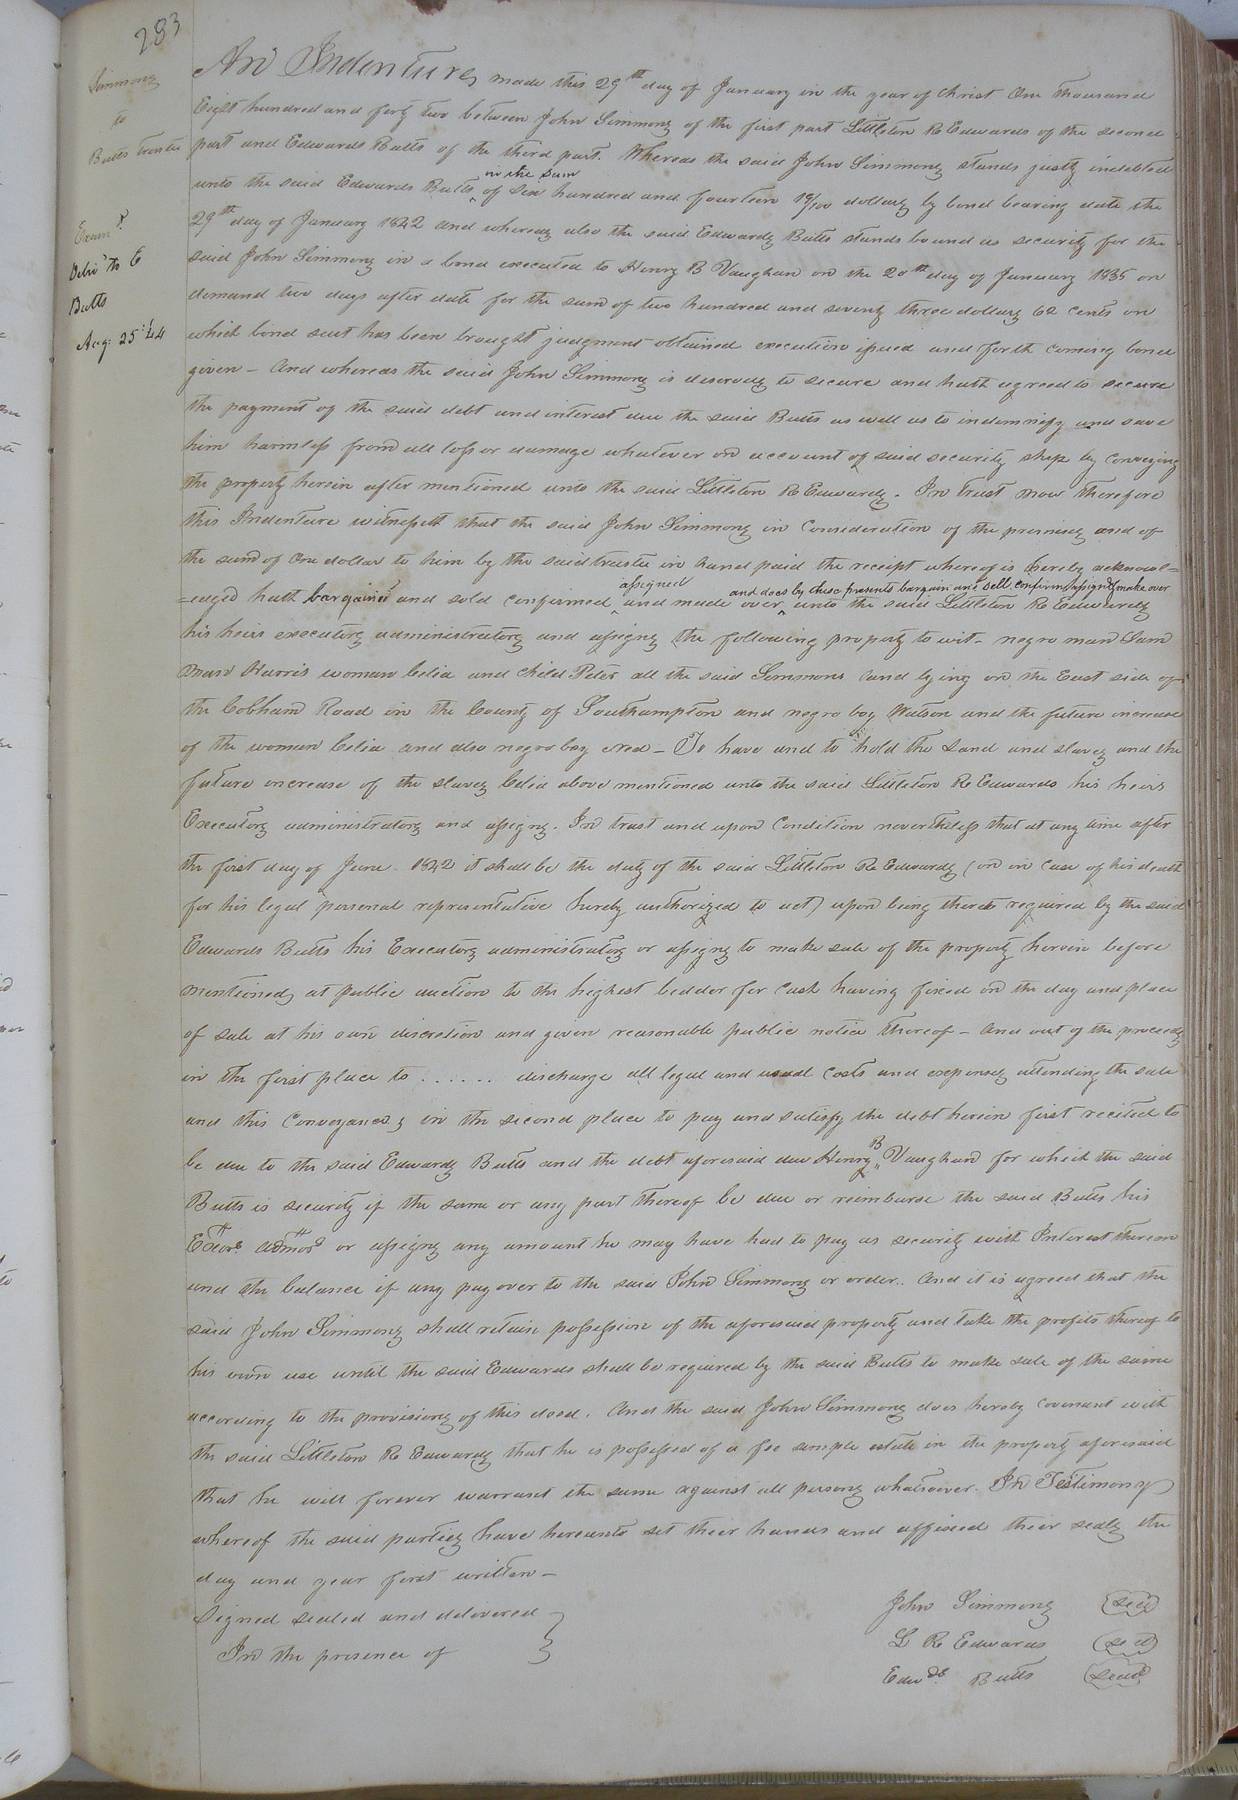 283
Simmons
to
Butts Trustee
Exam.d
Deliv.d to E
Butts
Aug. 25.' 44
An Indenture made this 29th day of January in the year of Christ One thousand
Eight hundred and forty two between John Simmons of the first part Littleton R Edwards of the second
part and Edwards Butts of the third part. Whereas the said John Simmons stands justly indebted
in the sum
unto the said Edwards Butts ^ of Six hundred and fourteen dollars by bond bearing date the
29th day of January 1842 and whereas also the said Edwards Butts stands bound as security for the
said John Simmons in a bond executed to Henry B Vaughan on the 20th day of January 1835 on
demand two days after date for the sum of two hundred and seventy three dollars 62 cents on
which bond suit has been brought judgment obtained execution issued and forth coming bond
given – And whereas the said John Simmons is desirous to secure and hath agreed to secure
the payment of the said debt and interest due the said Butts as well as to indemnify and save
him harmless from all loss or damage whatever on account of said security ship by conveying
the property herein after mentioned unto the said Littleton R Edwards. In trust now therefore
this Indenture witnesseth that the said John Simmons in Consideration of the premises and of
the sum of One dollar to him by the said trustee in hand paid the receipt whereof is hereby acknowl=
assigned and does by these presents bargain and sell confirm assign & make over
=edged hath bargained and sold confirmed ^ and made over ^ unto the said Littleton R Edwards
his heirs executors administrators and assigns the following property to wit – negro man Sam
man Harris woman Celia and child Peter all the said Simmons land lying on the East side of
the Cobham Road in the County of Southampton and negro boy Watson and the future increase
of the woman Celia and also negro boy Ned – To have and to hold the Land and slaves and the
future increase of the slaves Celia above mentioned unto the said Littleton R Edwards his heirs
Executors administrators and assigns. In trust and upon Condition nevertheless that at any time after
the first day of June 1842 it shall be the duty of the said Littleton R Edwards (or in case of his death
for his legal personal representative hereby authorized to act) upon being thereto required by the said
Edwards Butts his Executors administrators or assigns to make sale of the property herein before
mentioned, at public auction to the highest bidder for Cash having fixed on the day and place
of sale at his own discretion and given reasonable public notice thereof – And out of the proceeds
in the first place to . . . . . . discharge all legal and usual Costs and expenses attending the sale
and this Conveyance, in the second place to pay and satisfy the debt herein first recited to
B
be due to the said Edwards Butts and the debt aforesaid due Henry " Vaughan for which the said
Butts is security if the same or any part thereof be due or reimburse the said Butts his
Exors admors or assigns any amount he may have had to pay as security with Interest thereon
and the balance if any pay over to the said John Simmons or order. And it is agreed that the
said John Simmons shall retain possession of the aforesaid property and take the profits thereof to
his own use until the said Edwards shall be required by the said Butts to make sale of the same
according to the provisions of this deed. And the said John Simmons does hereby covenant with
the said Littleton R Edwards that he is possessed of a fee simple estate in the property aforesaid
that he will forever warrant the same against all persons whatsoever. In Testimony
whereof the said parties have hereunto set their hands and affixed their seals the
day and year first written –
Signed sealed and delivered }
In the presence of }
John Simmons (seal)
L R Edwards (seal)
Edwds Butts (seal)